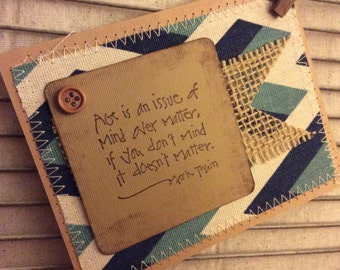 Age is an issue of
mind over matter,
if you don't mind
it doesn't matter.
Mark Twain